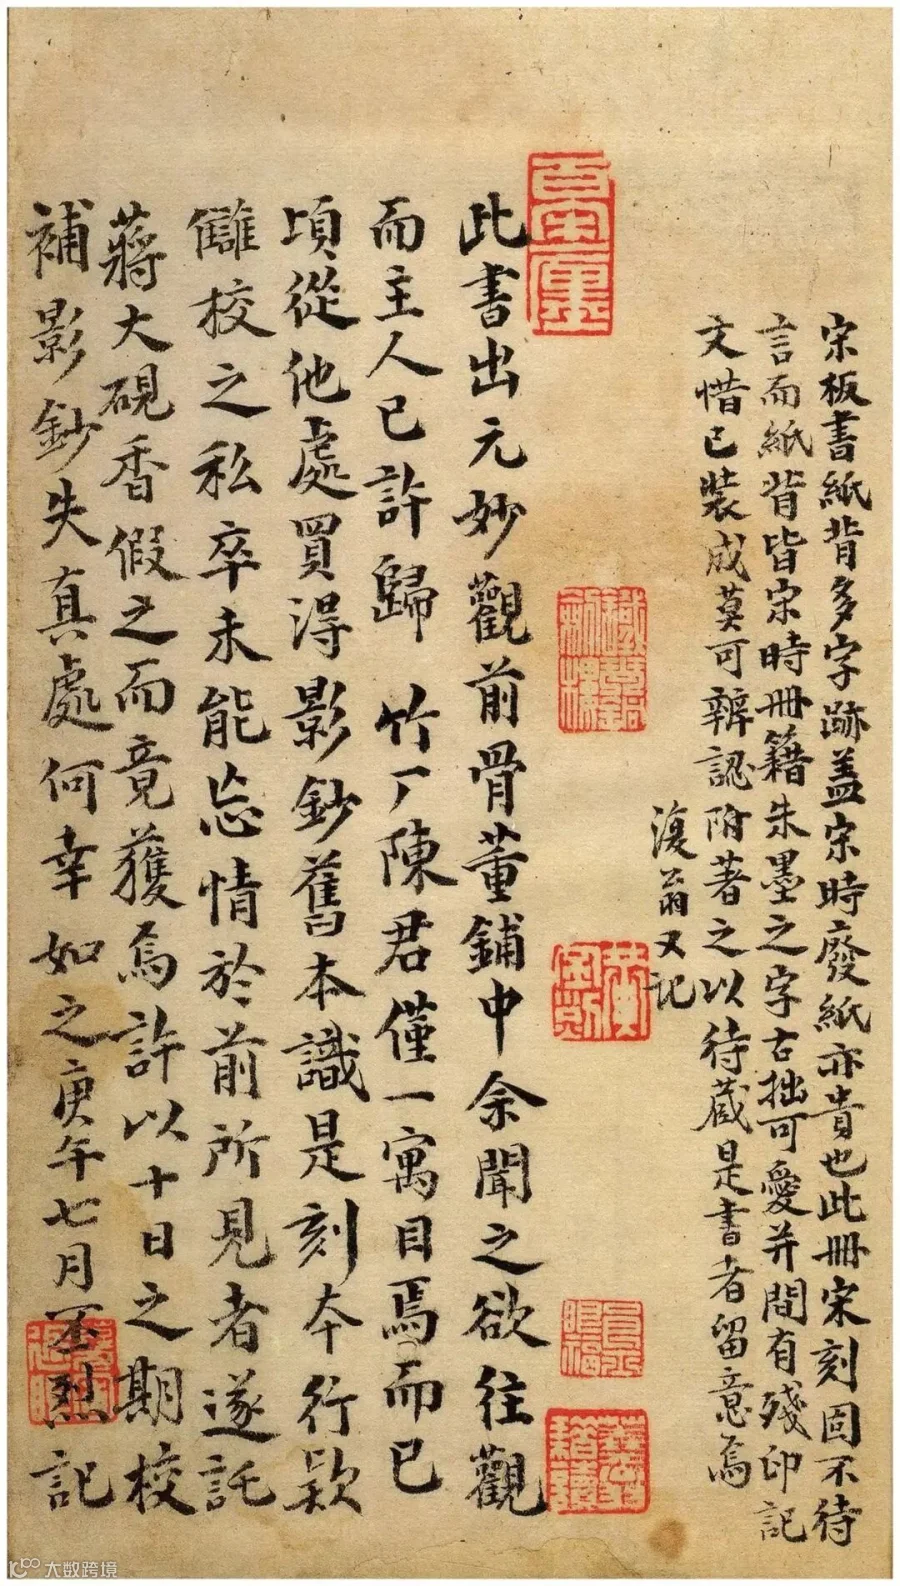 宋板書紙背多字跡蓋宋時廢紙亦貴也此冊宋刻固不待
言而紙背皆宋時冊籍朱墨之字古拙可愛并間有殘印記
文惜已裝成莫可辨認附著之以待藏是書者留意焉
復翁又記
此書出元妙觀前骨董鋪中余聞之欲往觀
而主人已許歸 竹厂陳君僅一寓目焉而已
頃從他處買得影鈔舊本識是刻本行款
讎校之私卒未能忘情於前所見者遂託
蔣大硯香假之而竟獲焉許以十日之期校
補影鈔失真處何幸如之庚午七月丕烈記
百宋一廛
黃丕烈
大数跨境